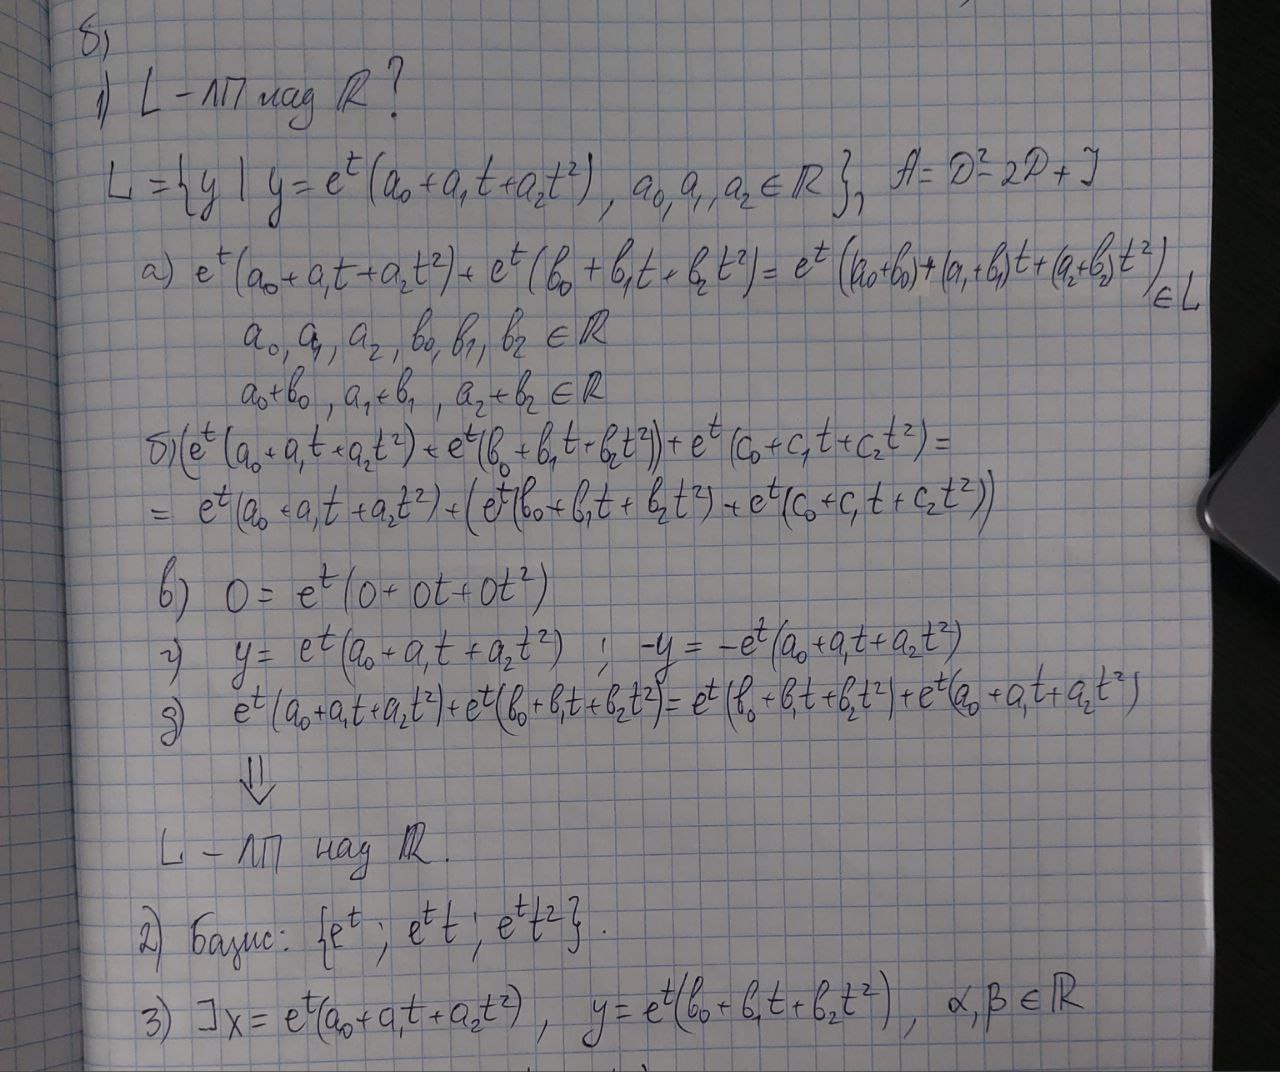 б)
1) L – ЛП над ℝ?
L = {y | y = eᵗ(a₀ + a₁t + a₂t²), a₀, a₁, a₂ ∈ ℝ}, A = D² - 2D + I
а) eᵗ(a₀ + a₁t + a₂t²) + eᵗ(b₀ + b₁t + b₂t²) = eᵗ((a₀+b₀) + (a₁+b₁)t + (a₂+b₂)t²) ∈ L
a₀, a₁, a₂, b₀, b₁, b₂ ∈ ℝ
a₀+b₀, a₁+b₁, a₂+b₂ ∈ ℝ
б) (eᵗ(a₀ + a₁t + a₂t²) + eᵗ(b₀ + b₁t + b₂t²)) + eᵗ(c₀ + c₁t + c₂t²) =
= eᵗ(a₀ + a₁t + a₂t²) + (eᵗ(b₀ + b₁t + b₂t²) + eᵗ(c₀ + c₁t + c₂t²))
в) 0 = eᵗ(0 + 0t + 0t²)
г) y = eᵗ(a₀ + a₁t + a₂t²) ; -y = -eᵗ(a₀ + a₁t + a₂t²)
д) eᵗ(a₀ + a₁t + a₂t²) + eᵗ(b₀ + b₁t + b₂t²) = eᵗ(b₀ + b₁t + b₂t²) + eᵗ(a₀ + a₁t + a₂t²)
⇓
L – ЛП над ℝ.
2) Базис: {eᵗ; eᵗt; eᵗt²}.
3) ∃ x = eᵗ(a₀ + a₁t + a₂t²), y = eᵗ(b₀ + b₁t + b₂t²), α, β ∈ ℝ